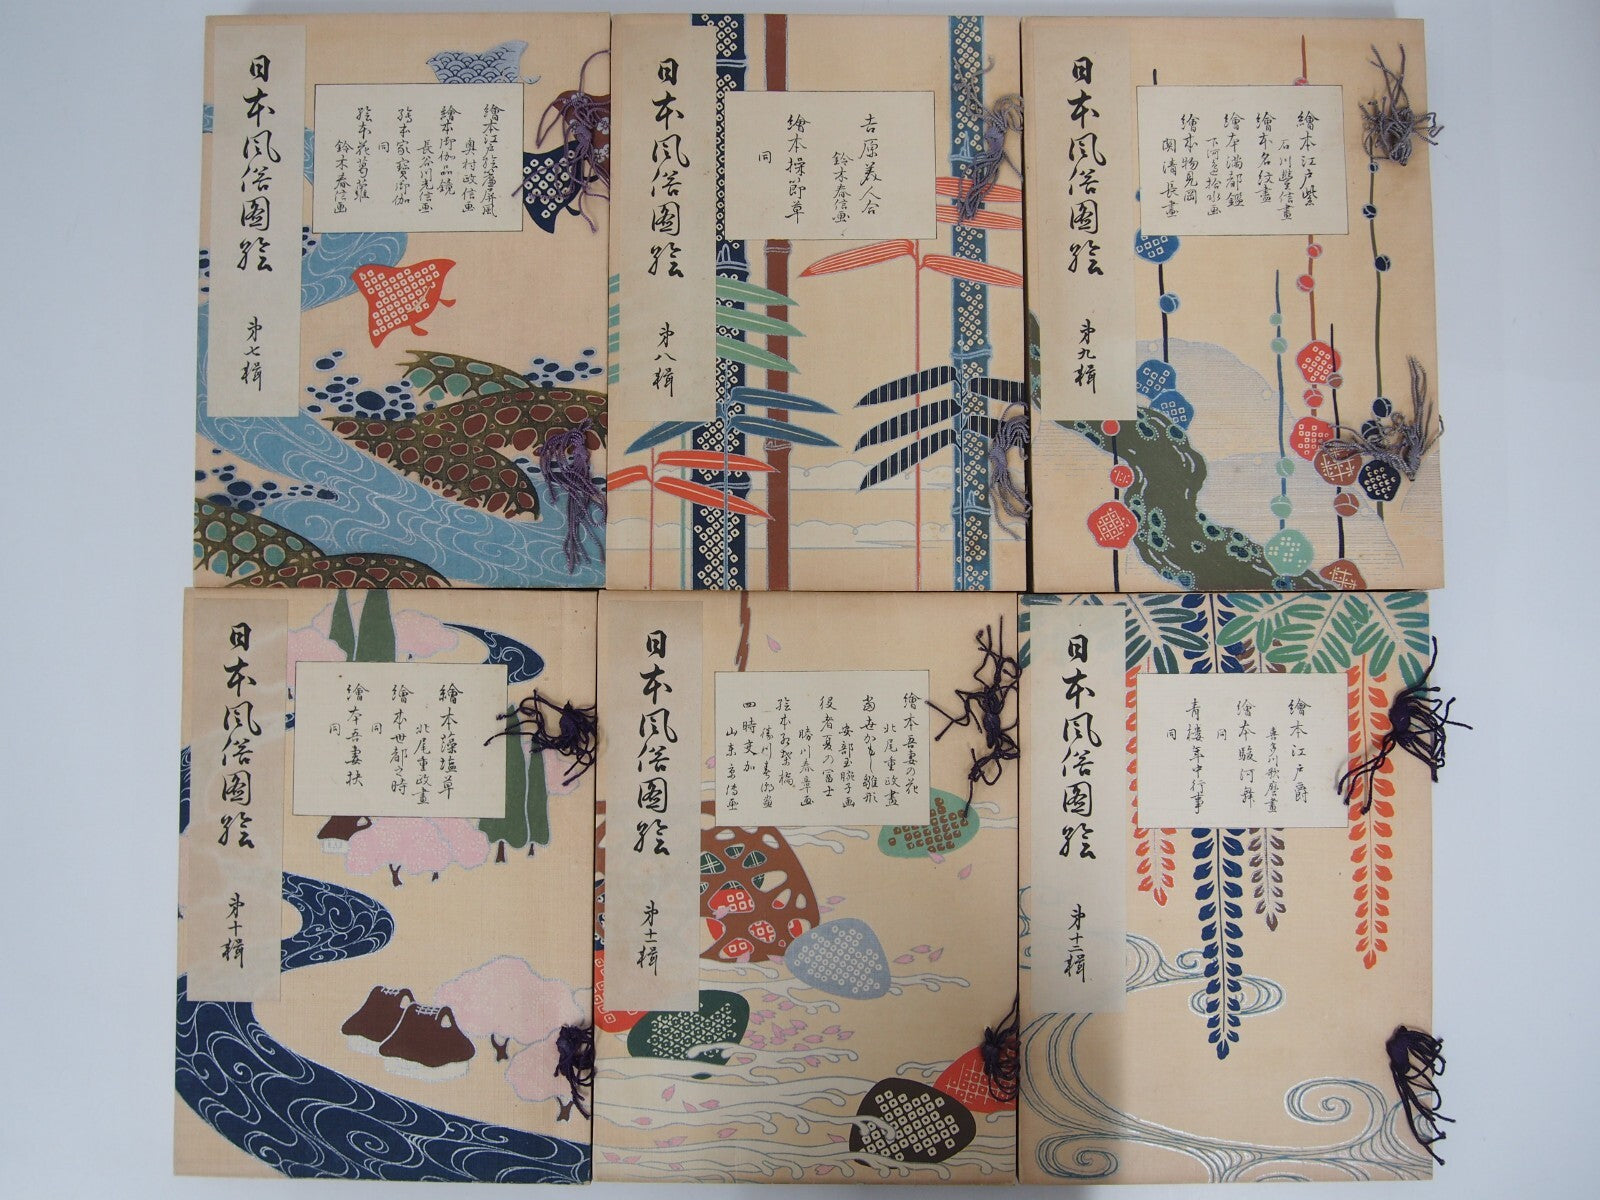 日本風俗圖繪
第七輯
繪本江戸絵簾屏風
奥村政信画
繪本御伽品鏡
長谷川光信画
絵本家寶御伽
同
絵本花葛蘿
鈴木春信画
日本風俗圖繪
第八輯
吉原美人合
鈴木春信画
繪本操節草
同
日本風俗圖繪
第九輯
繪本江戸紫
石川豐信畫
繪本名紋盡
繪本満都鑑
下河邊拾水画
繪本物見岡
関清長畫
日本風俗圖繪
第十輯
繪本藻塩草
北尾重政畫
繪本世都之時
同
繪本吾妻抉
同
日本風俗圖繪
第十一輯
繪本吾妻の花
北尾重政畫
當世かもし雛形
安部玉腕子画
役者夏の富士
勝川春章画
絵本紅葉橋
勝川春潮畫
四時交加
山東京傳画
日本風俗圖繪
第十二輯
繪本江戸爵
喜多川歌麿畫
繪本駿河舞
同
青樓年中行事
同